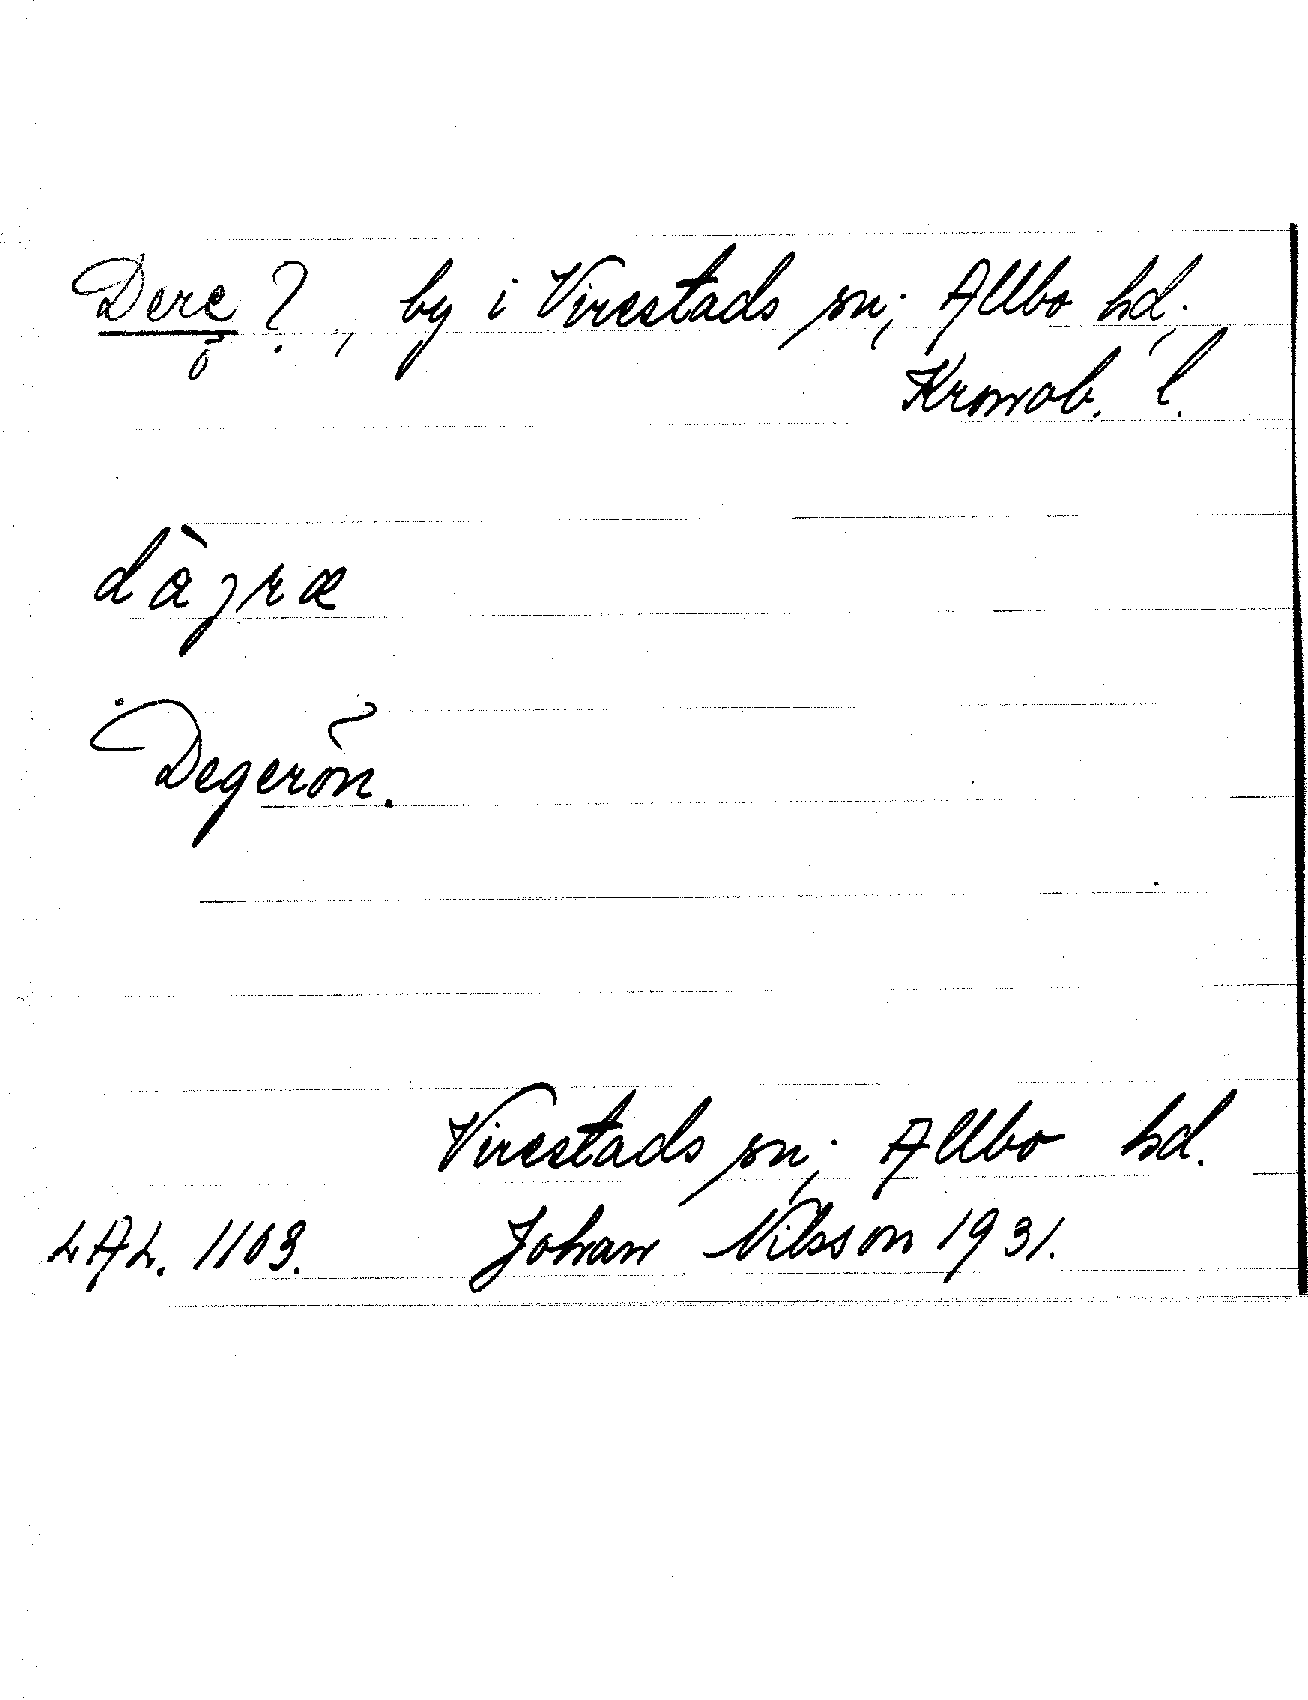 Dere ?, by i Virestads sn; Allbo hd,
ö
Kronob. l.
dàjræ
Degerön.
Virestads sn; Allbo hd.
LAL. 1103. Johan Nilsson 1931.